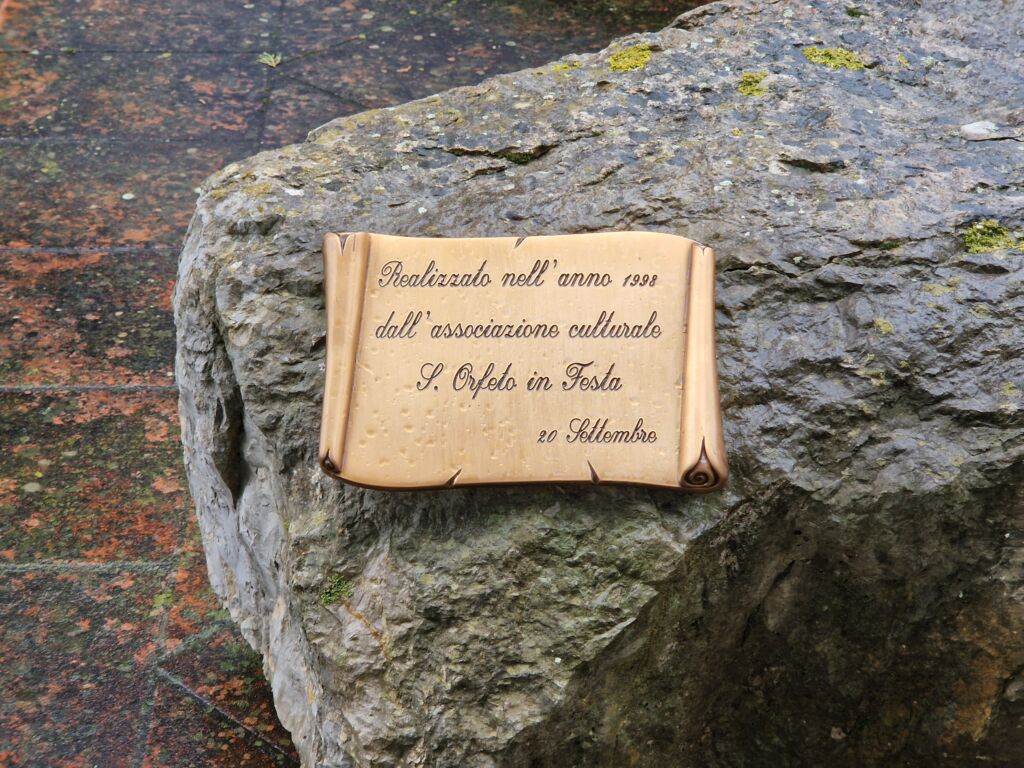 Realizzato nell'anno 1998
dall'associazione culturale
S. Orfeto in Festa
20 Settembre